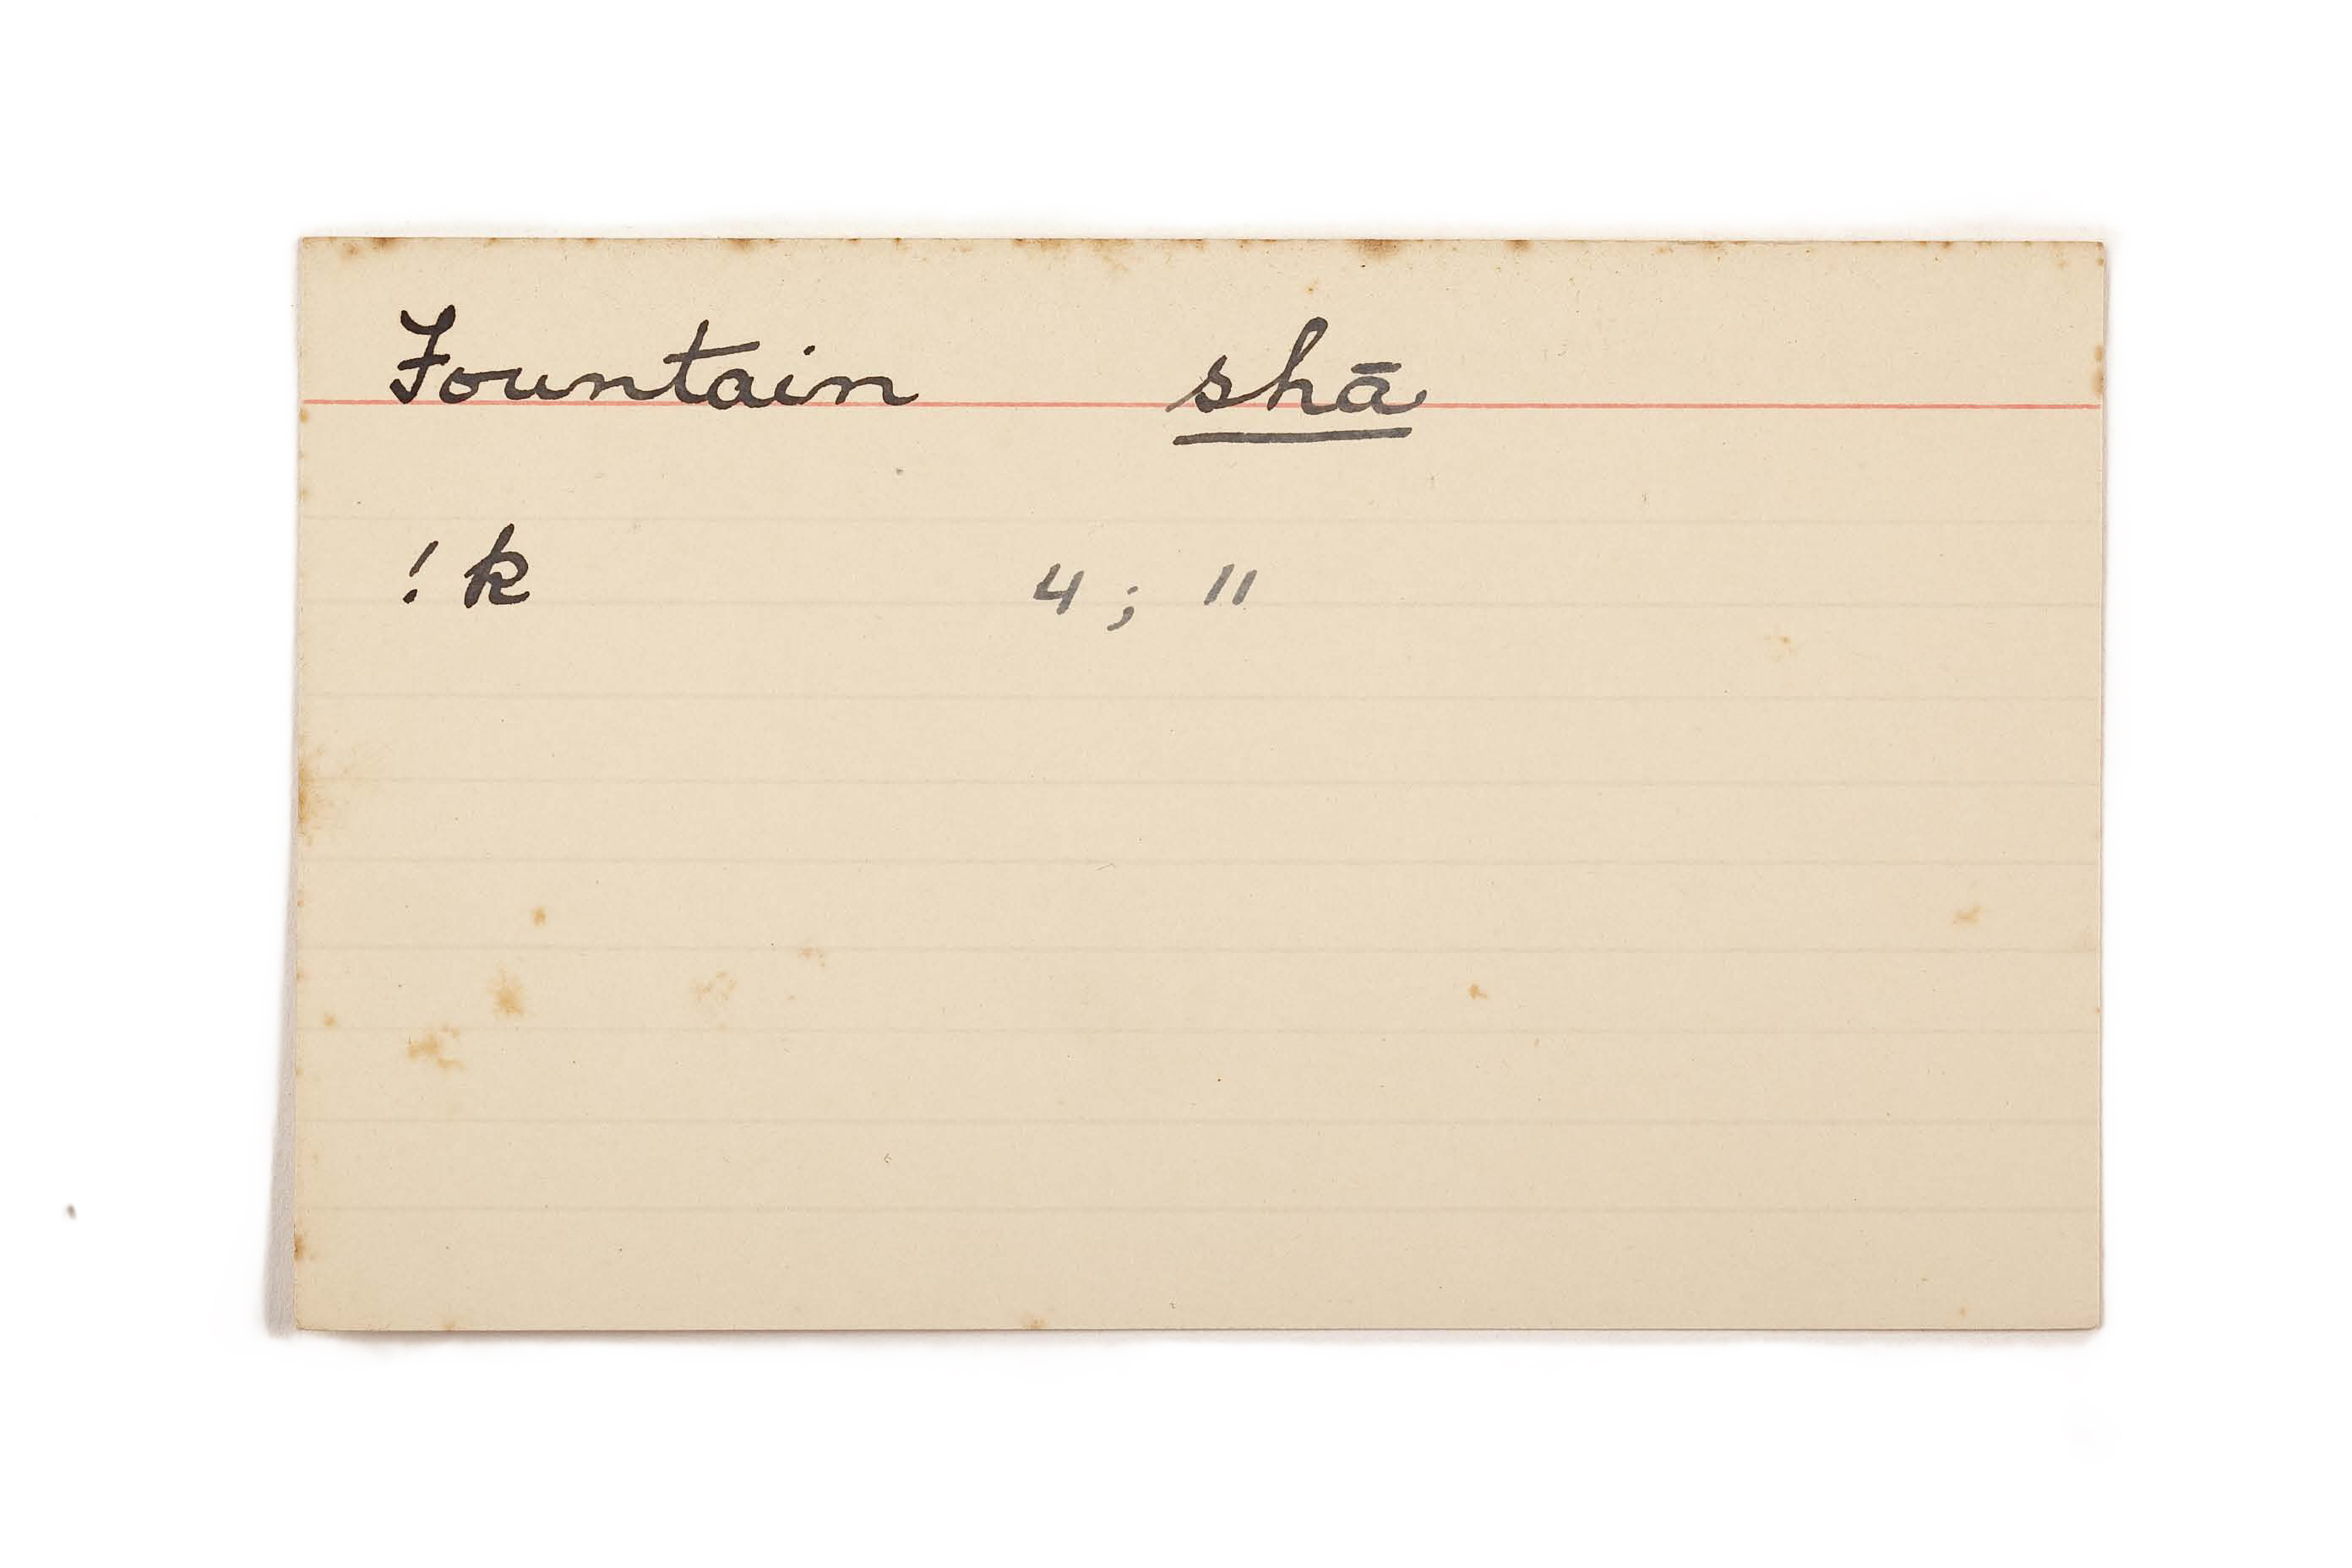 Fountain shā
! k 4 ; 11